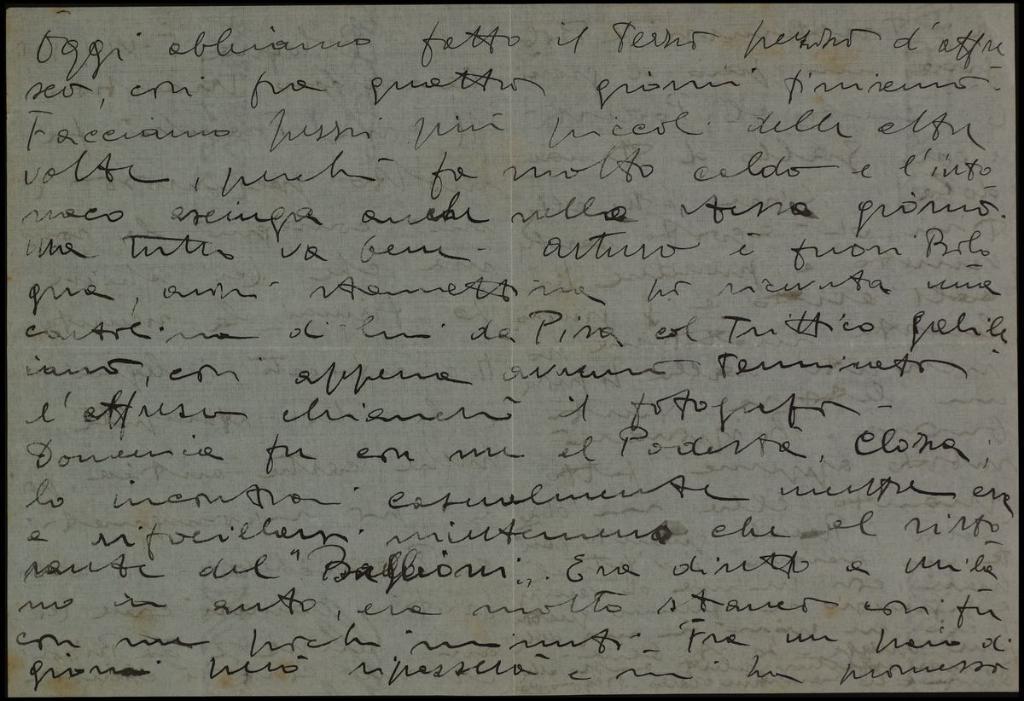 Oggi abbiamo fatto il terzo pezzo d'affre
sco, così fra quattro giorni finiremo.
Facciamo pezzi più piccoli delle altre
volte, perché fa molto caldo e l'into
naco asciuga anche nello stesso giorno.
Ma tutto va bene - Arturo è fuori Bolo
gna, anzi stamattina ho ricevuta una
cartolina di lui da Pisa col Trittico galile
iano, così appena avremo terminato
l'affresco chiamerò il fotografo -
Domenica fu con me il Podestà, Clossa,
lo incontrai casualmente mentre era
a rifocillarsi nientemeno che al risto
rante del "Baglioni". Era diretto a Mila
no in auto, era molto stanco così fu
con me pochi minuti - Fra un paio di
giorni però ripasserà e mi ha promesso